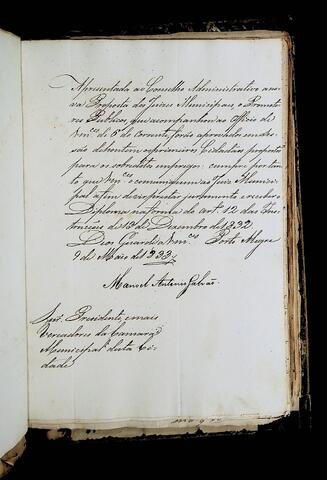 Apresentada ao Conselho Administrativo a no-
va Proposta dos Juizes Municipaes, e Promoto-
res Publicos, que acompanhou o Officio de
Vm.ces de 6 do corrente, forão aprovados em Ses-
são de hontem os primeiros Cidadãos propostos
para os sobreditos empregos: cumpre por tan-
to que Vm.ces o communiquem ao Juiz Munici-
pal afim de vir prestar juramento, e receber o
Diploma na forma do art. 12 das Ins-
trucções de 13 de Dezembro de 1832
Deos Guarde a Vm. Porto Alegre
9 de Maio de 1833
Manoel Antonio Galvão
Snrs. Presidente, e mais
Vereadores da Camara
Municipal desta Ci-
dade